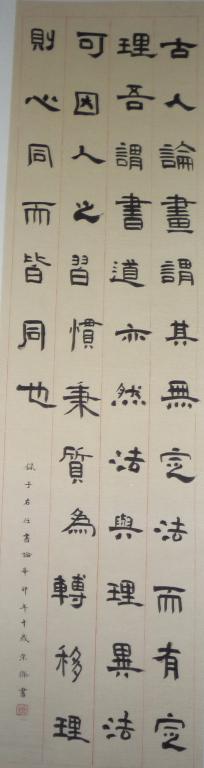 古人論畫謂其無定法而有定
理吾謂書道亦然法與理異法
可因人之習慣秉質為轉移理
則心同而皆同也
錄于右任書論辛卯年十歲書